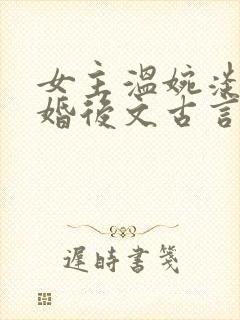 女主温婉
婚後文古言
遲時書箋